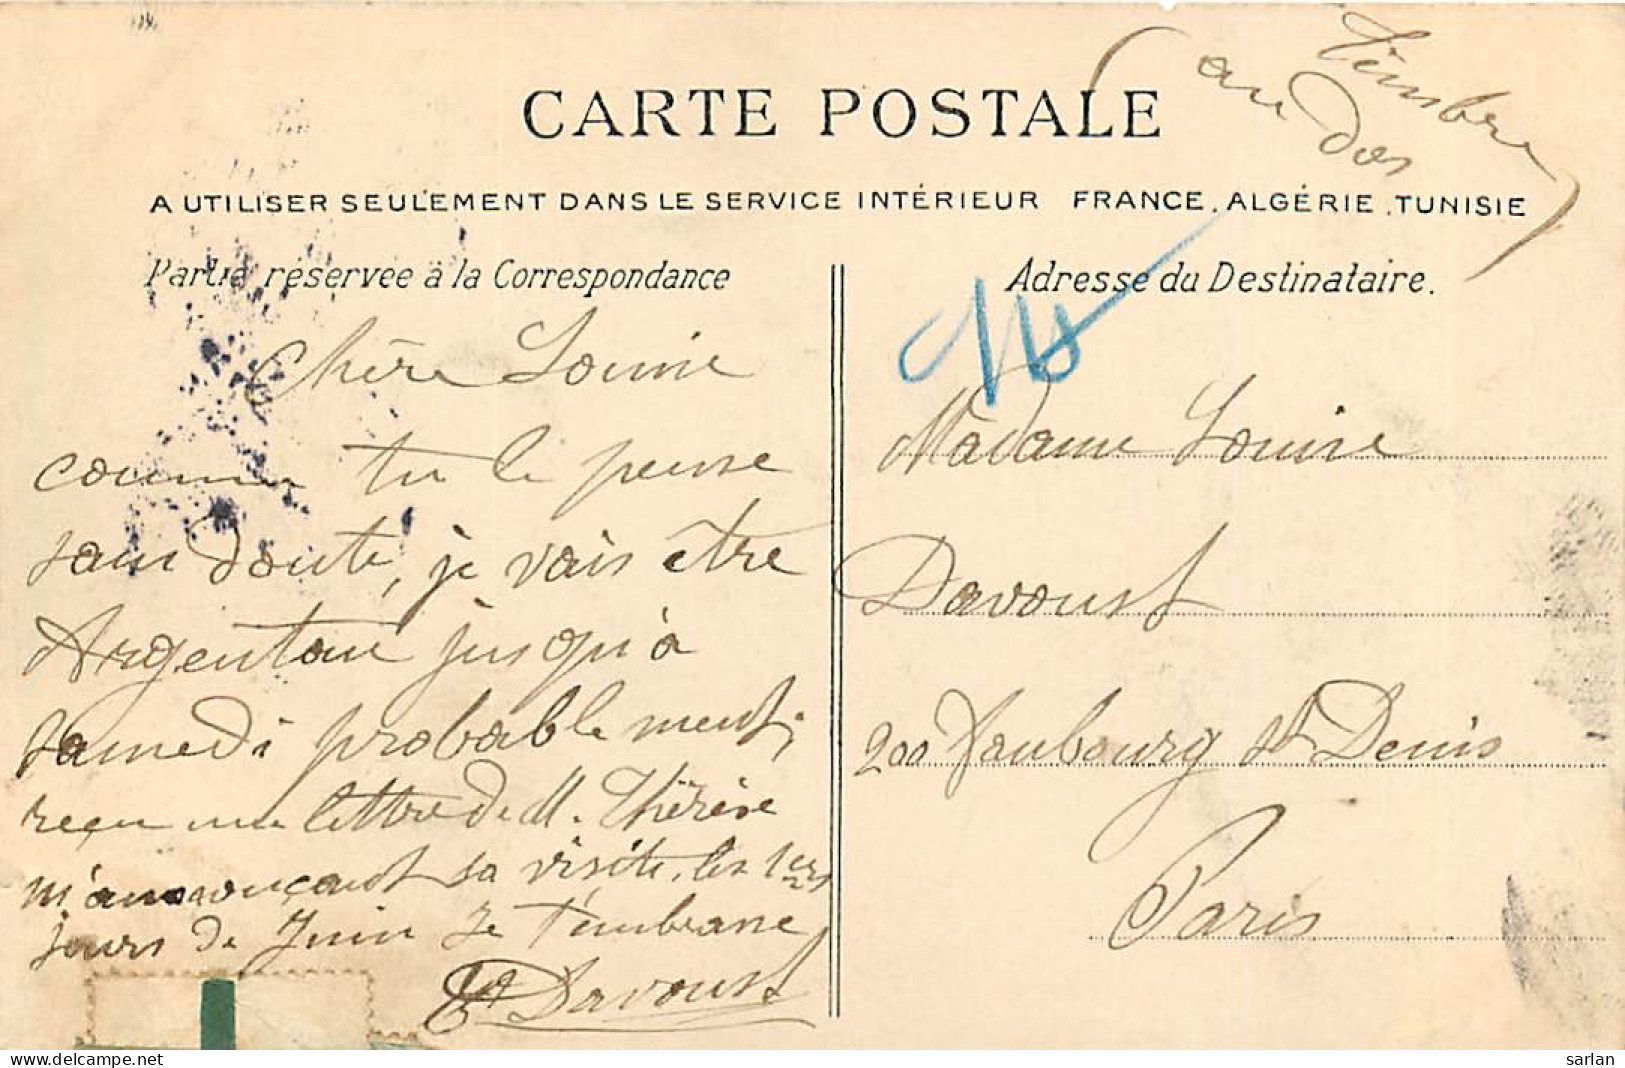 CARTE POSTALE
(Timbre
au dos)
A UTILISER SEULEMENT DANS LE SERVICE INTÉRIEUR FRANCE, ALGÉRIE, TUNISIE
Partie réservée à la Correspondance
Adresse du Destinataire.
Chère Louise
comme tu le pense
sans doute, je vais être
Argentan jusqu'à
samedi probablement;
reçu une lettre de M. Thérèse
m'annonçant sa visite, les 1ers
jours de Juin Je t'embrasse
Davoust
Madame Louise
Davoust
200 Faubourg St Denis
Paris
sarlan